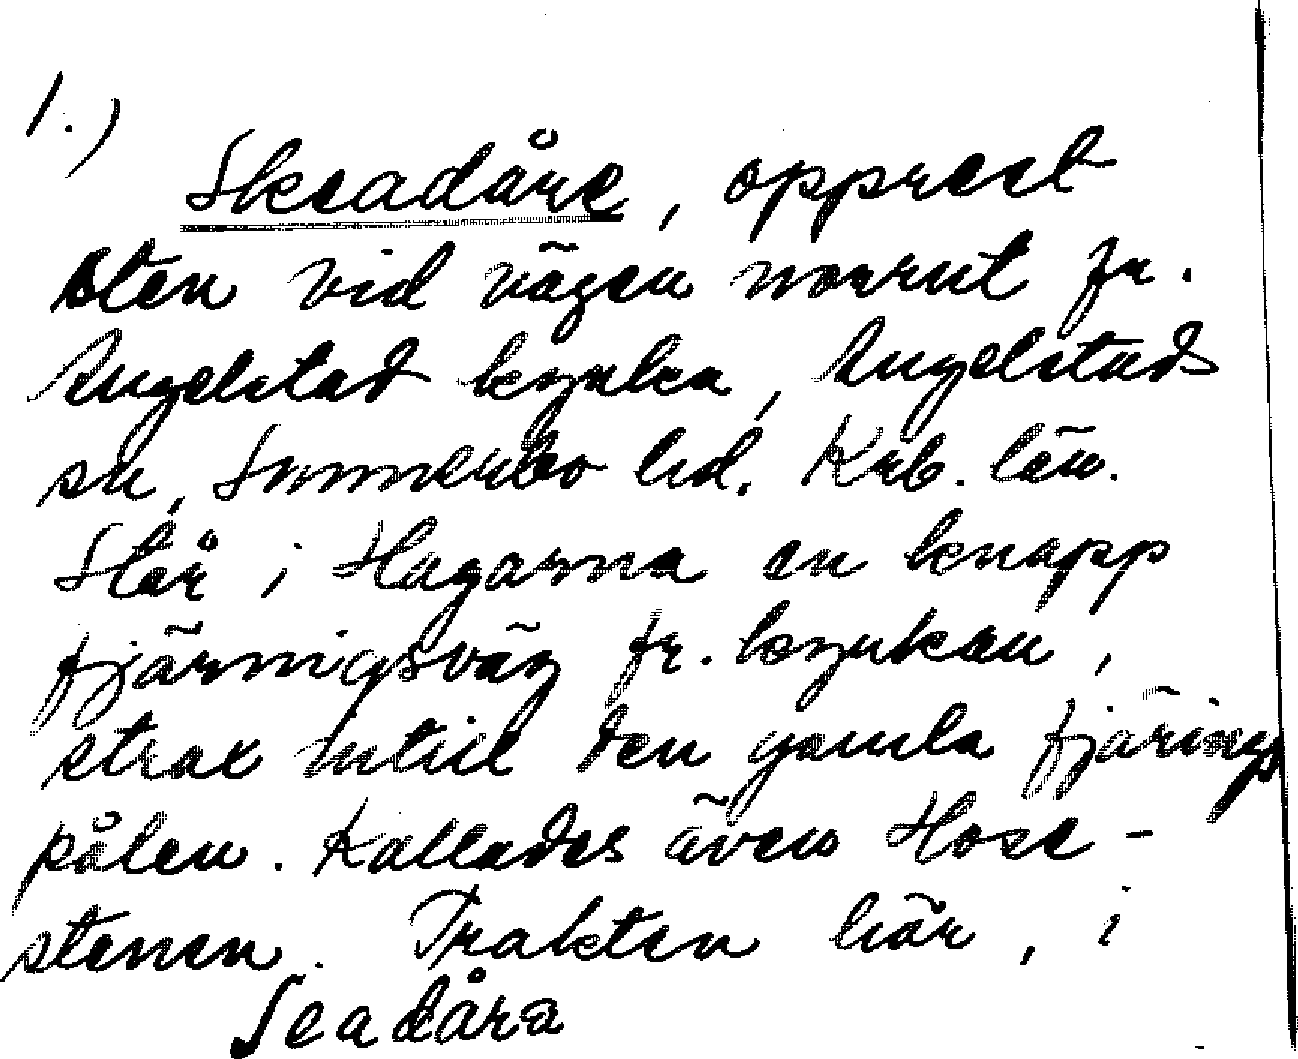 1.)
Skeadåre, opprest
sten vid vägen norrut fr.
Angelstad kyrka, Angelstad
sn, Sunnerbo hd. Krb. län.
Står i Hagarna en knapp
fjärnigsväg fr. kyrkan,
strax intill den gamla fjärings
pålen. Kallades även Hose-
stenen. Trakten här, i
Seadåra